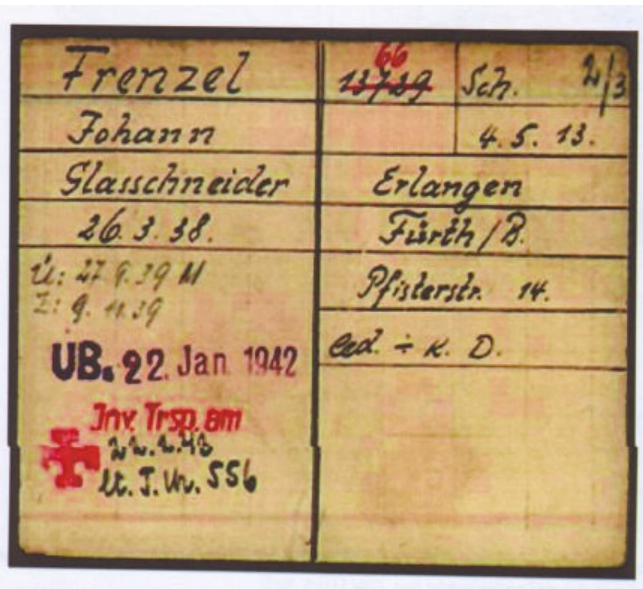 Frenzel
Johann
Glasschneider
26. 3. 38.
Ü: 27. 9. 39 M
Z: 9. 11. 39
UB. 22. Jan 1942
Inv. Trsp. am
22. 2. 42
lt. J. Nr. 556
66
13729 Sch. 2/3
4. 5. 13.
Erlangen
Fürth / B.
Pfisterstr. 14.
led. ÷ K. D.